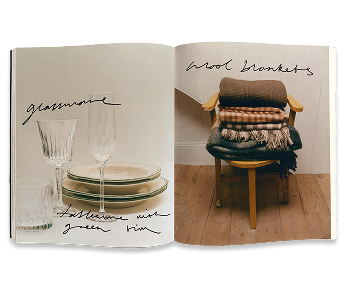 glassware
tableware with
green rim
wool blankets